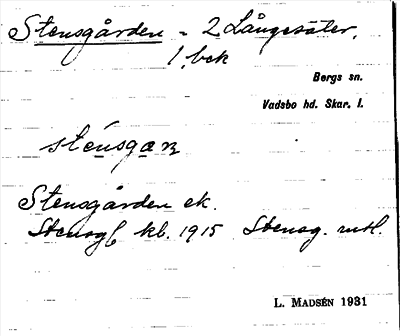 Stensgården - 2 Långesäter,
1, bek
Bergs sn.
Vadsbo hd. Skar. l.
Stensgården ek.
Stensg kb. 1915 Stensg. mtl.
L. MADSÉN 1931